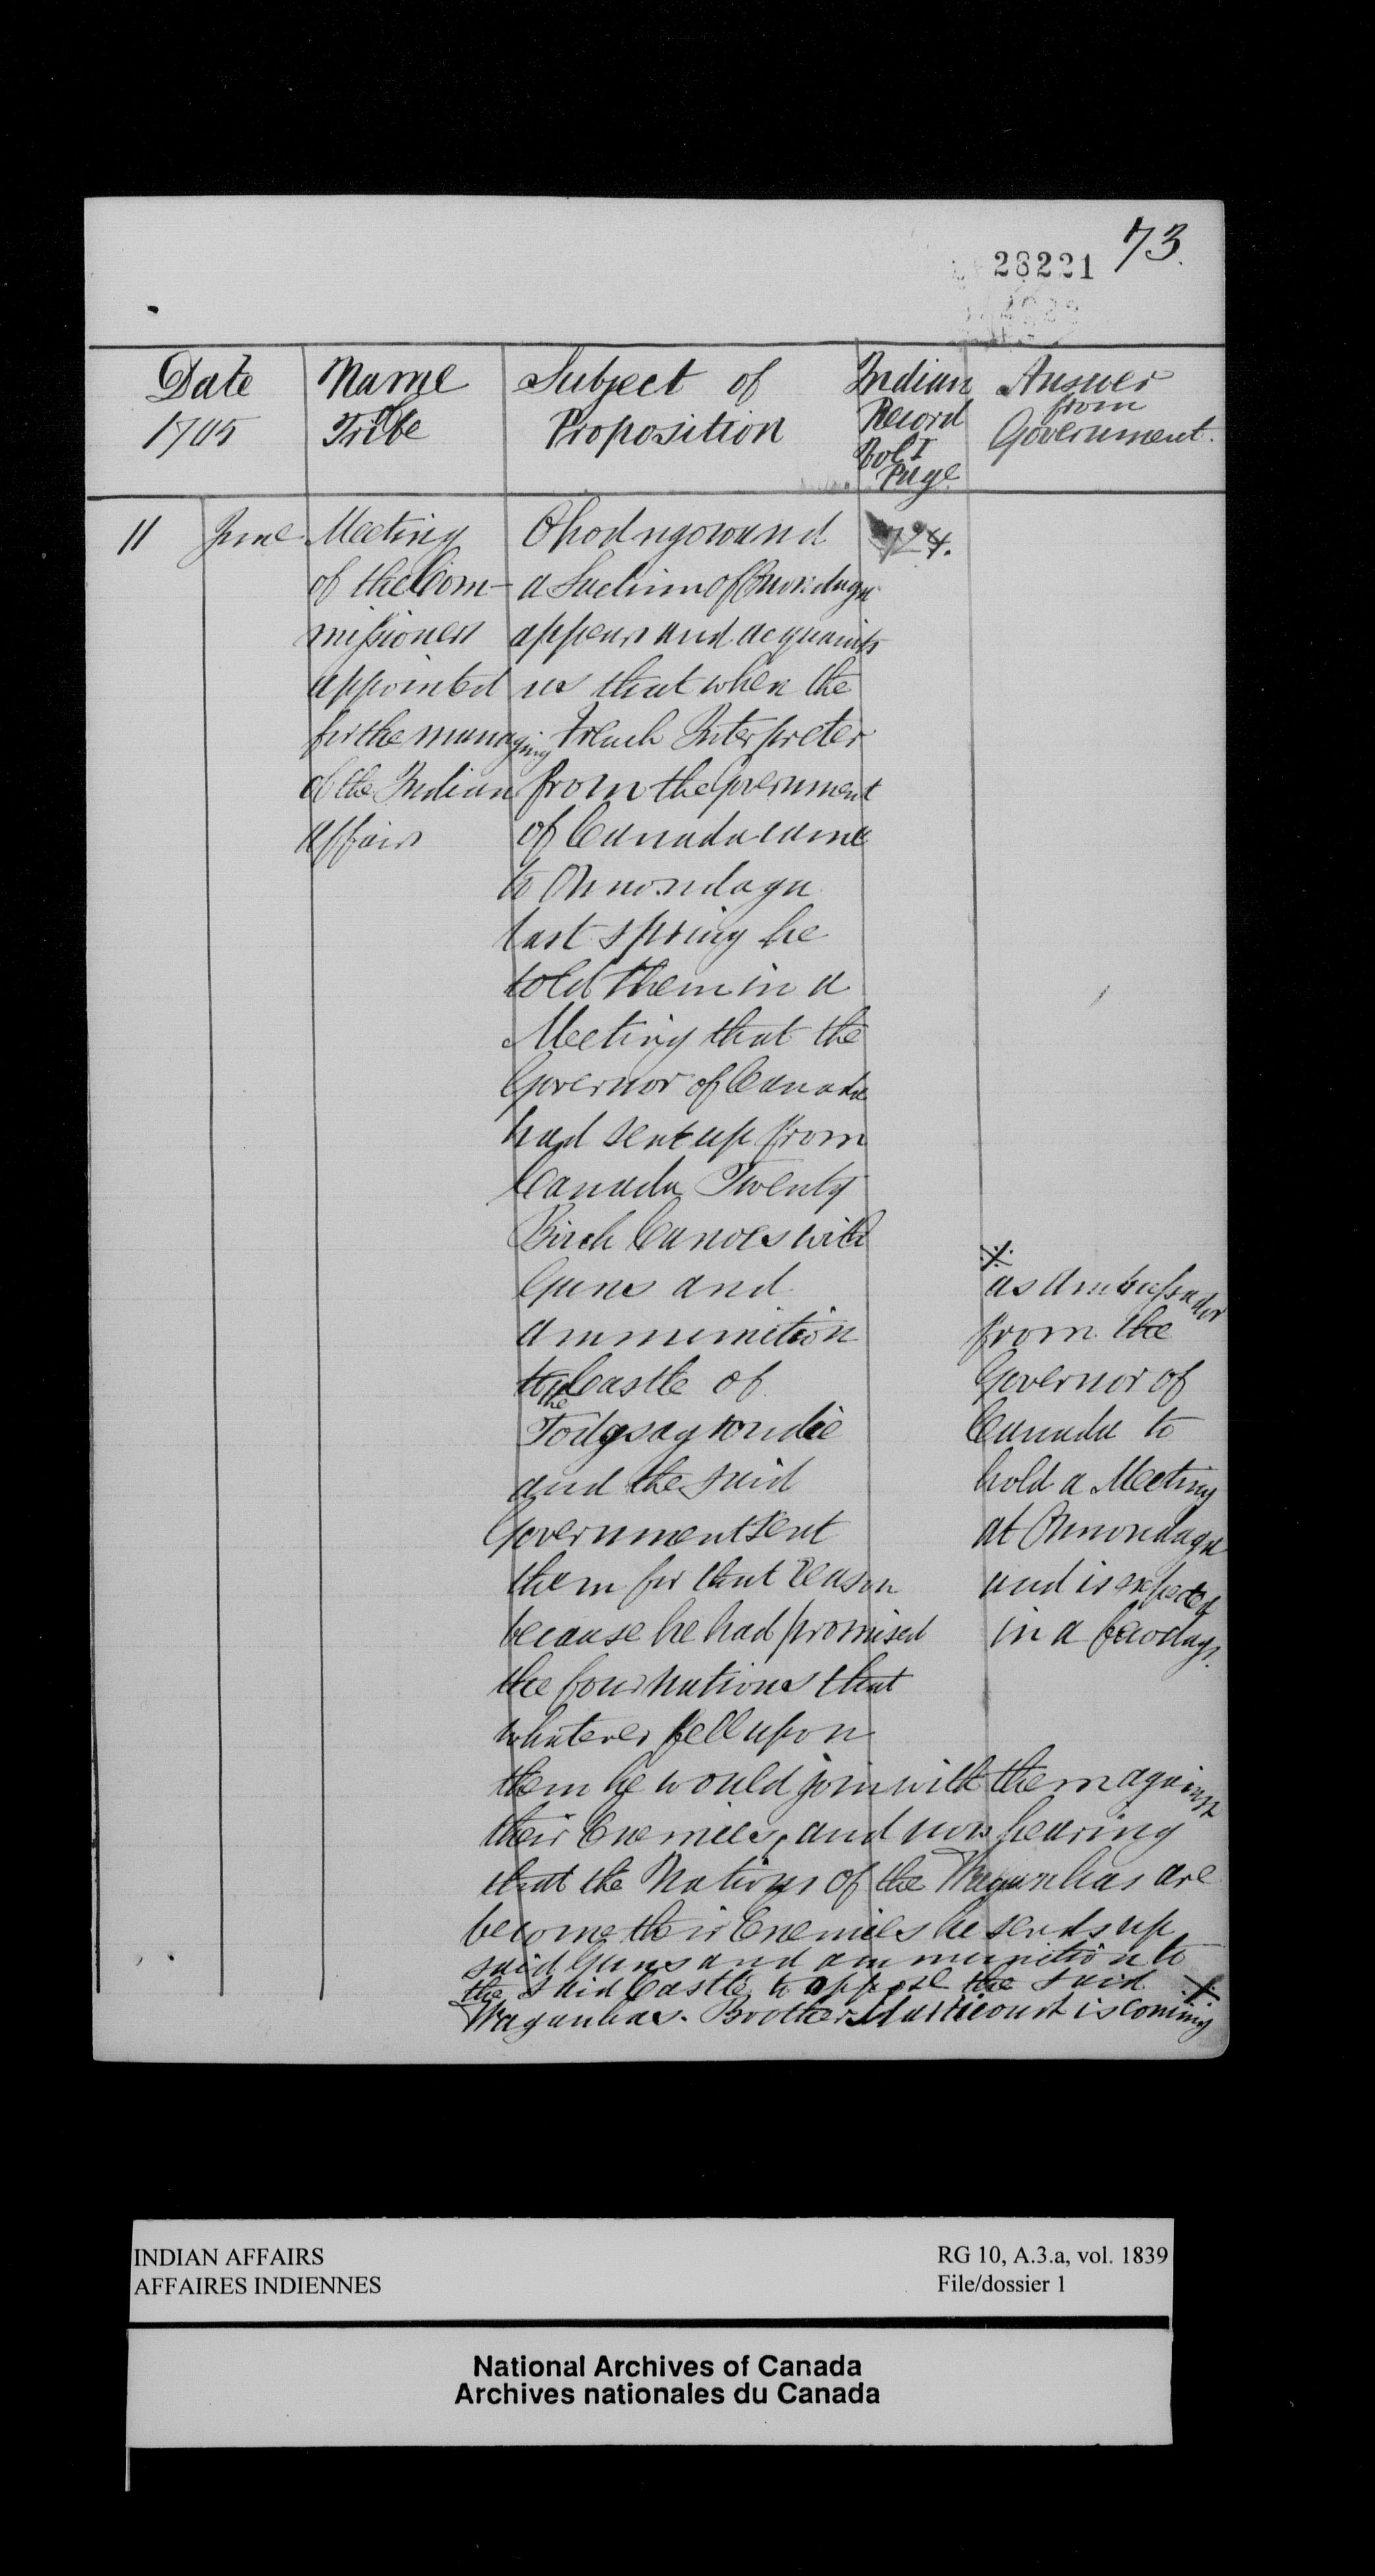 73.
28221
Date
1705
Name
of
Tribe
Subject of
Proposition
Indian
Record
Vol I
Page
Answer
from
Government.
11 June
Meeting
of the Com-
missioners
appointed
for the managing
of the Indian
Affairs
Ohodngowand
a Sachim of Onondaga
appears and acquaints
us that when the
French Interpreter
from the Government
of Canada came
to Onnondaga
last spring he
told them in a
Meeting that the
Governor of Canada
had sent up from
Canada Twenty
Birch Canoes with
Guns and
ammunition
to the Castle of
and the said
Government sent
them for that reason
because he had promised
the four nations that
whatever fell upon
them he would join with them against
their Enemies, and now hearing
that the Nations of the Waganhas are
become their Enemies he sends up
said Guns and ammunition to
the said Castle to oppose the said
Waganhas. Brother Marricourt is coming
as Ambassador
from the
Governor of
Canada to
hold a Meeting
at Onnondaga
and is expected
in a few days.
INDIAN AFFAIRS
AFFAIRES INDIENNES
RG 10, A.3.a, vol. 1839
File/dossier 1
National Archives of Canada
Archives nationales du Canada